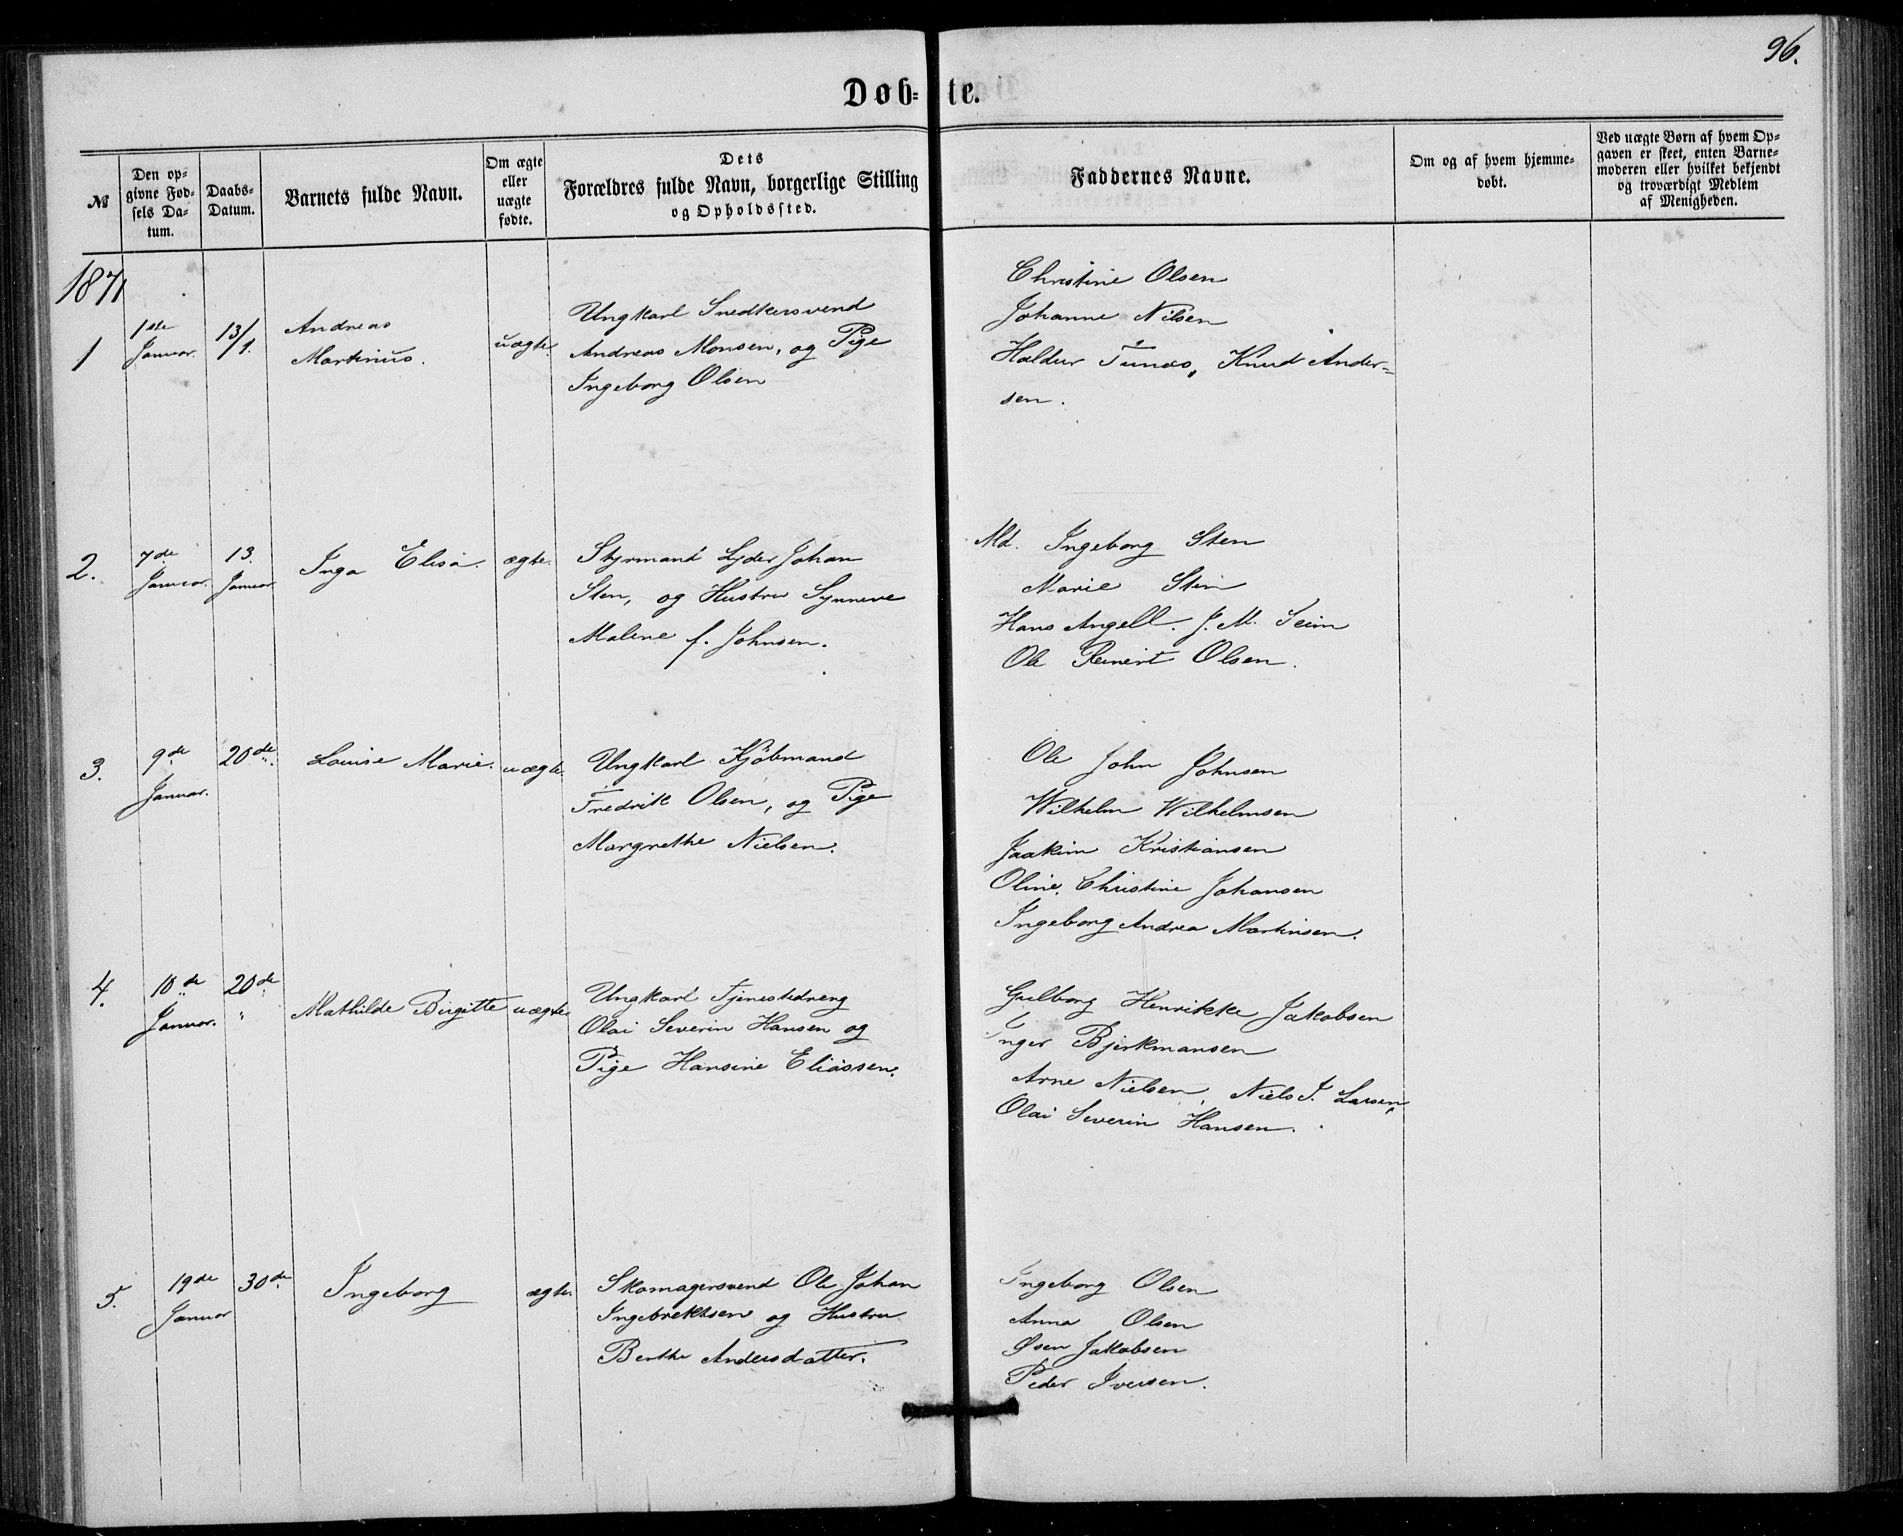 96.
Døb=te.
№
Den op-
givne Fød-
sels Da-
tum.
Daabs-
Datum.
Barnets fulde Navn.
Om ægte
eller
uægte
fødte.
Dets
Forældres fulde Navn, borgerlige Stilling
og Opholdssted.
Faddernes Navne.
Om og af hvem hjemme-
døbt.
Ved uægte Børn af hvem Op-
gaven er skeet, enten Barne-
moderen eller hvilket bekjendt
og troværdigt Medlem
af Menigheden.
1871
1
1ste
Januar.
13/1.
Andreas
Martinus.
uægte.
Ungkarl Snedkersvend
Andreas Monsen, og Pige
Ingeborg Olsen
Christine Olsen
Johanne Nilsen
Haldur Tunæs, Knud Ander-
sen.
2.
7de
Januar.
13.
Januar
Inga Elisa.
ægte.
Styrmand Lyder Johan
Sten, og Hustru Synneve
Malene f. Johnsen.
Md. Ingeborg Sten
Marie Sten
Hans Angell. J. M. Seim
Ole Reinert Olsen.
3.
9de
Januar.
20de
Louise Marie.
uægte.
Ungkarl Kjöbmand
Fredrik Olsen, og Pige
Margrethe Nielsen.
Ole John Johnsen
Wilhelm Wilhelmsen
Joakim Kristiansen
Oline Christine Johansen
Ingeborg Andrea Martinsen.
4.
10de
Januar.
20de
"
Mathilde Birgitte
uægte.
Ungkarl Tjenestedreng
Olai Severin Hansen og
Pige Hansine Eliassen.
Gulborg Henrikke Jakobsen
Inger Bjerkmansen
Arne Nielsen, Niels J. Larsen,
Olai Severin Hansen.
5.
19de
Januar
30de
Ingeborg
ægte.
Skomagersvend Ole Johan
Ingebrektsen og Hustru
Berthe Andersdatter.
Ingeborg Olsen
Anna Olsen
Øsen Jakobsen
Peder Iversen.